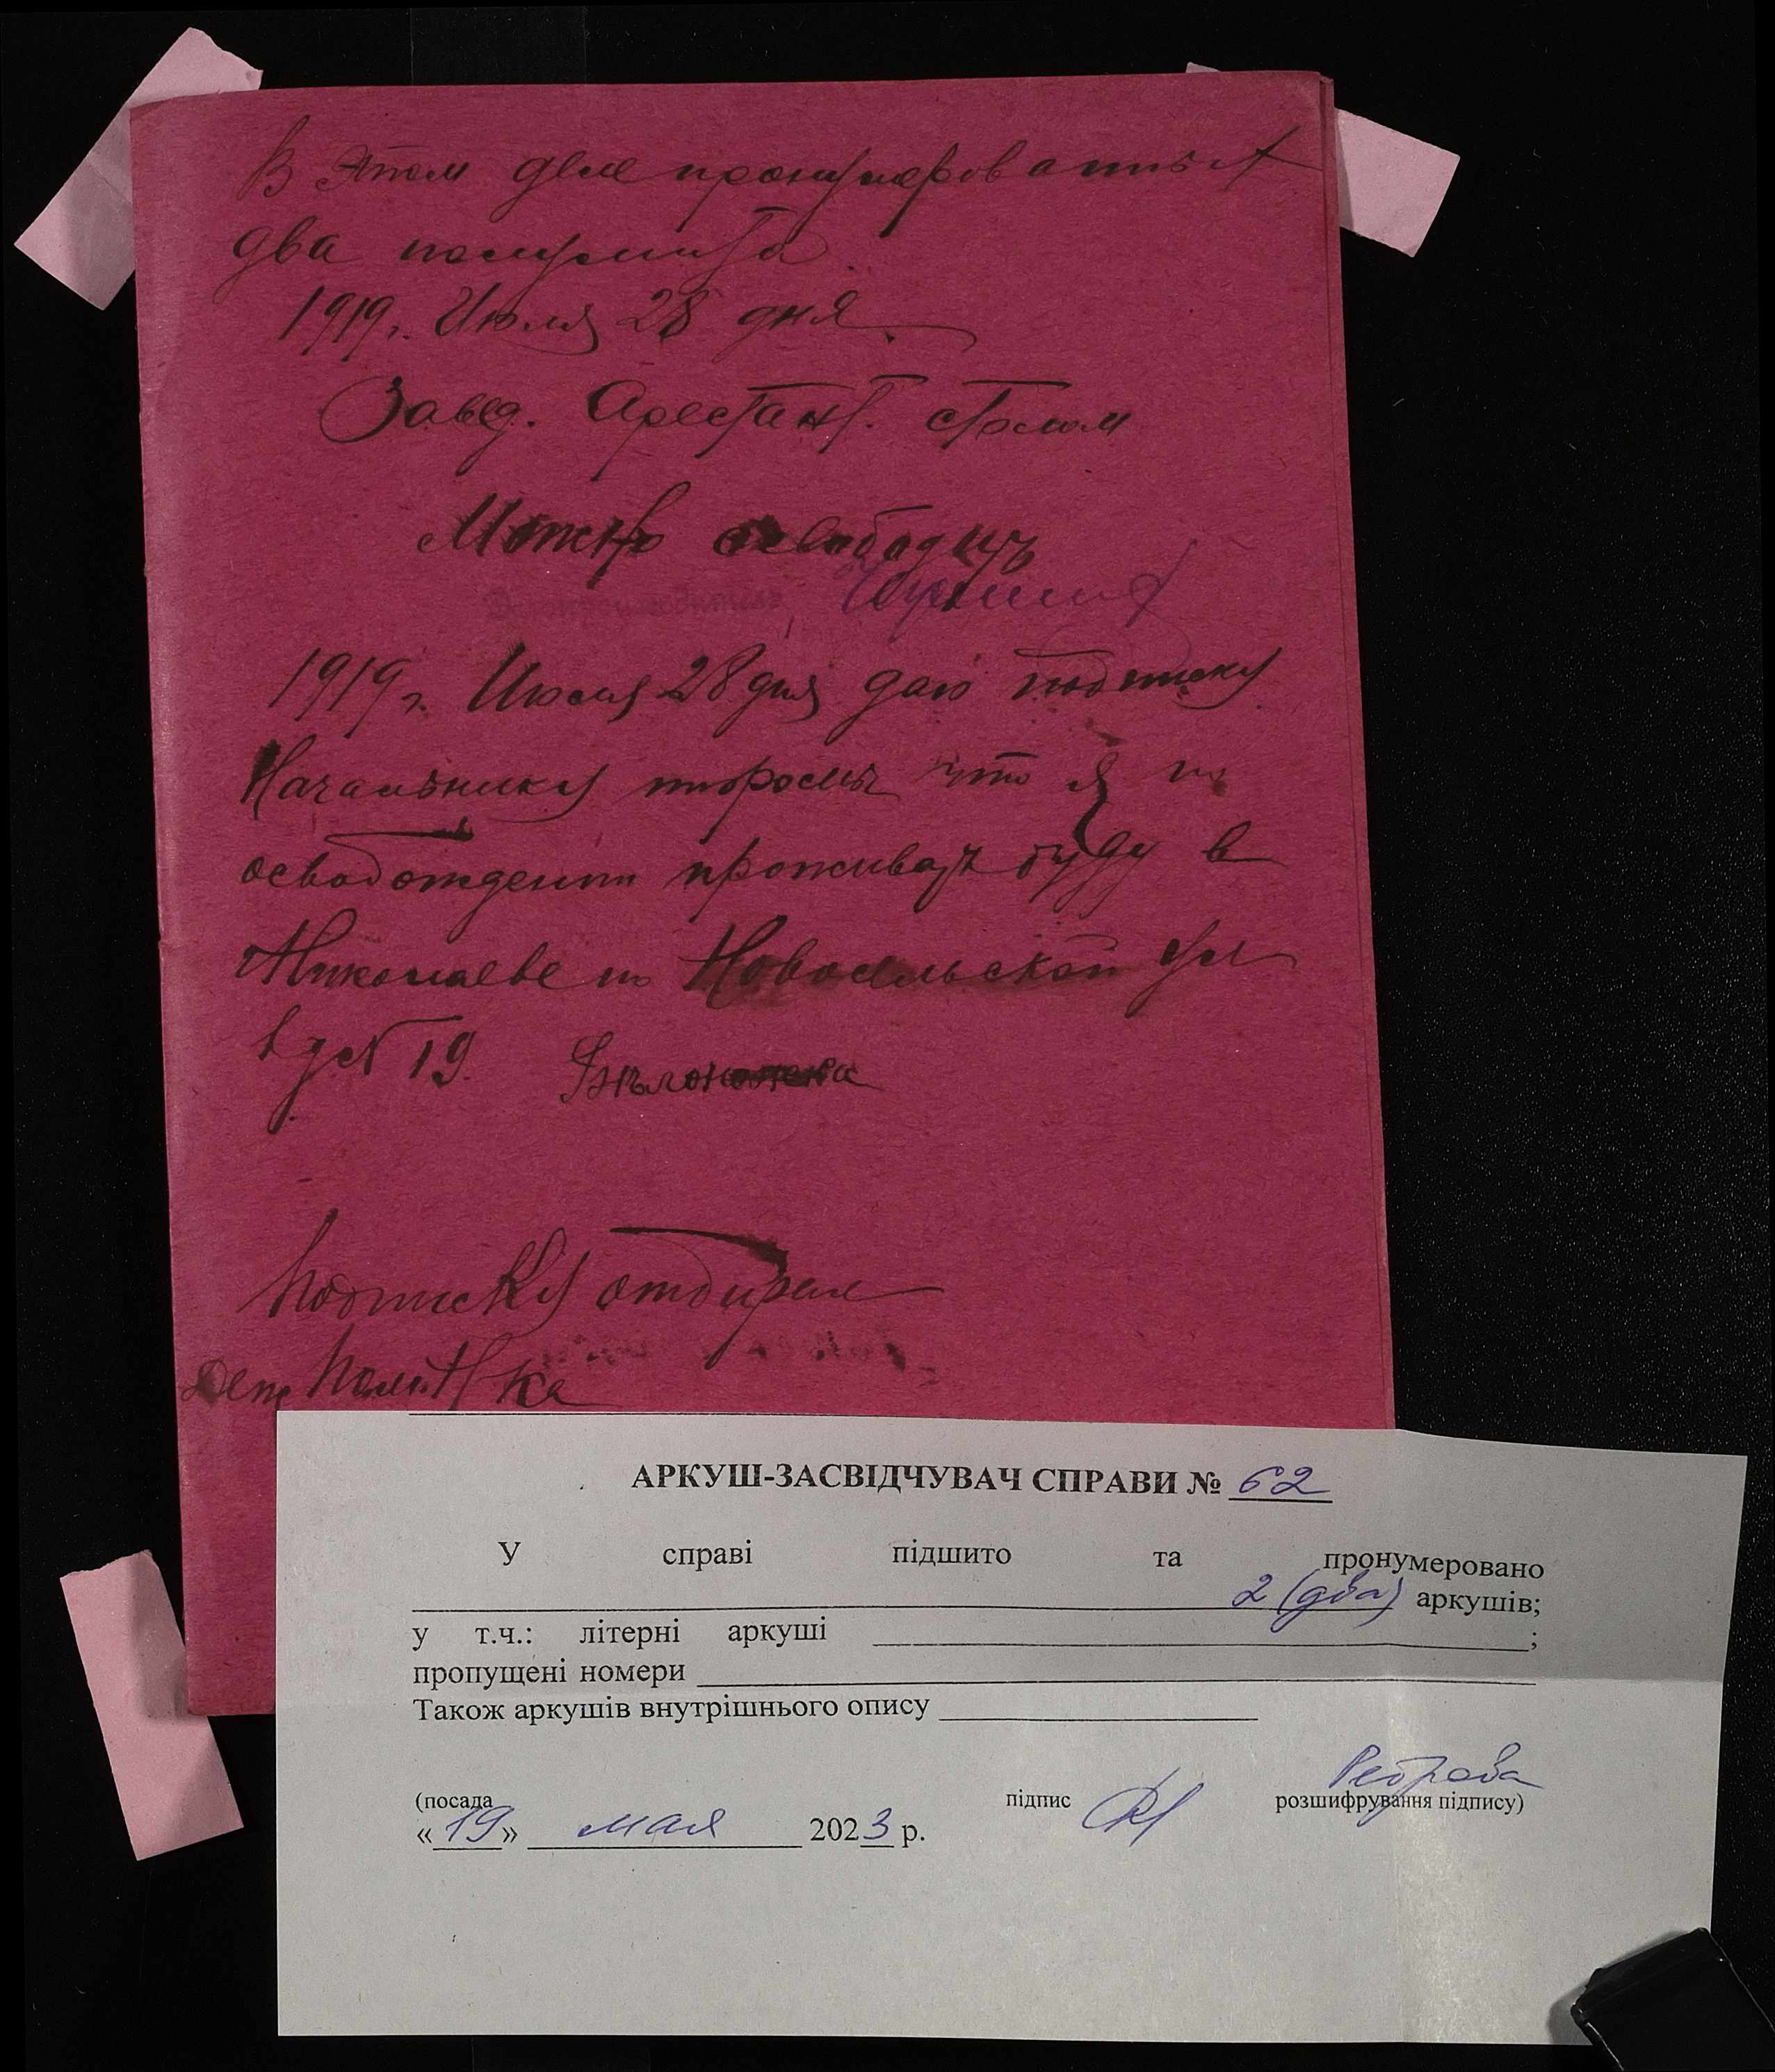 В этом деле пронумерованных
два полулиста
1919 г. Июля 28 дня
Завед. Арестант. столом
Можно освободить
Делопроизводитель
1919 г. Июля 28 дня даю подписку
Начальнику тюрьмы что я по
освобождении проживать буду в
Николаеве по Новосельской ул
в д № 19.
Подписку отбирал
АРКУШ-ЗАСВІДЧУВАЧ СПРАВИ № 62
У справі підшито та пронумеровано
2 (два) аркушів;
у т.ч.: літерні аркуші ;
пропущені номери
Також аркушів внутрішнього опису
Реброва
(посада підпис розшифрування підпису)
« 19 » мая 2023 р.